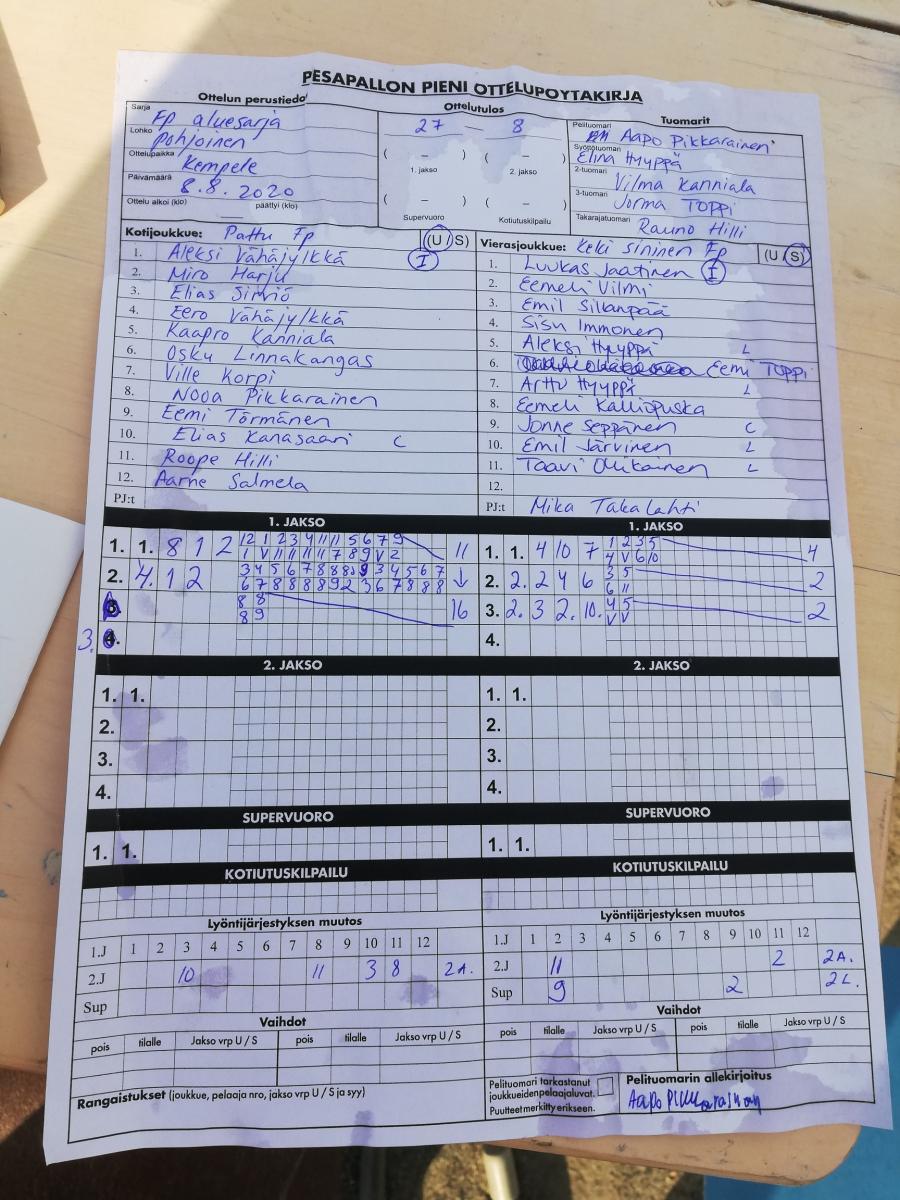 PESAPALLON PIENI OTTELUPOYTAKIRJA
Ottelun perustiedo
Sarja Fp aluesarja
Lohko Pohjoinen
Ottelupaikka Kempele
Päivämäärä 8.8.2020
Ottelu alkoi (klo) päättyi (klo)
Ottelutulos
27 — 8
( – ) ( – )
1. jakso 2. jakso
( – ) ( – )
Supervuoro Kotiutuskilpailu
Tuomarit
Pelituomari Aapo Pikkarainen
Syöttötuomari Elina Hyyppä
2-tuomari Vilma Kanniala
3-tuomari Jorma Toppi
Takarajatuomari Rauno Hilli
Kotijoukkue: Pattu Fp (U/S)
1. Aleksi Vähäjylkkä I
2. Miro Harju
3. Elias Sirviö
4. Eero Vähäjylkkä
5. Kaapro Kanniala
6. Osku Linnakangas
7. Ville Korpi
8. Nooa Pikkarainen
9. Eemi Törmänen
10. Elias Kanasaari C
11. Roope Hilli
12. Aarne Salmela
PJ:t
Vierasjoukkue: Keki sininen Fp (U/S)
1. Luukas Jaatinen I
2. Eemeli Vilmi
3. Emil Sillanpää
4. Sisu Immonen
5. Aleksi Hyyppä L
6. Eemi Toppi
7. Arttu Hyyppä L
8. Eemeli Kalliopuska
9. Jonne Seppänen C
10. Emil Järvinen L
11. Taavi Oikainen L
12.
PJ:t Mika Takalahti
1. JAKSO
1. 1. 8 1 2 12 1 2 3 4 11 11 5 6 7 9 11
1 V 11 11 11 11 7 8 9 V 2
2. 4. 1 2 3 4 5 6 7 8 8 8 9 3 4 5 6 7 ↓
6 7 8 8 8 8 9 2 3 6 7 8 8 8
8 8 16
8 9
3.
1. JAKSO
1. 1. 4 10 7 1 2 3 5 4
4 V 6 10
2. 2. 2 4 6 3 5 2
6 11
3. 2. 3 2. 10. 4 5 2
V V
4.
2. JAKSO
1. 1.
2.
3.
4.
2. JAKSO
1. 1.
2.
3.
4.
SUPERVUORO
1. 1.
SUPERVUORO
1. 1.
KOTIUTUSKILPAILU
KOTIUTUSKILPAILU
Lyöntijärjestyksen muutos
1.J 1 2 3 4 5 6 7 8 9 10 11 12
2.J 10 11 3 8 2A.
Sup
Lyöntijärjestyksen muutos
1.J 1 2 3 4 5 6 7 8 9 10 11 12
2.J 11 2 2A.
Sup 9 2 2L.
Vaihdot
pois tilalle Jakso vrp U / S pois tilalle Jakso vrp U / S
Vaihdot
pois tilalle Jakso vrp U / S pois tilalle Jakso vrp U / S
Rangaistukset (joukkue, pelaaja nro, jakso vrp U / S ja syy)
Pelituomari tarkastanut
joukkueiden pelaajaluvat.
Puutteet merkitty erikseen.
Pelituomarin allekirjoitus
Aapo Pikkarainen